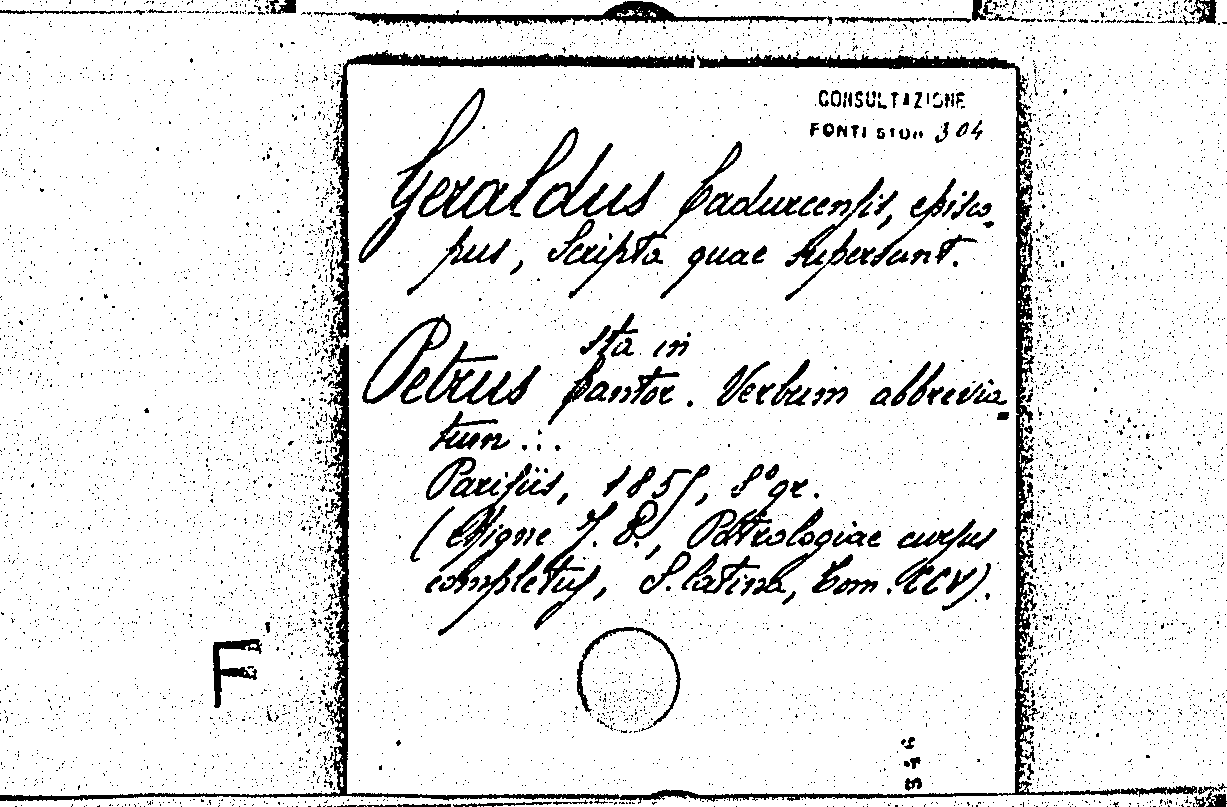 CONSULTAZIONE
FONTI STOR 304
Geraldus Cadurcensis, episco-
pus, Scripta quae supersunt.
sta in
Petrus Cantor. Verbum abbrevia-
tum...
Parisiis, 1855, 8° gr.
(Migne J. P., Patrologiae cursus
completus, S. latina, tom. CCV).
F